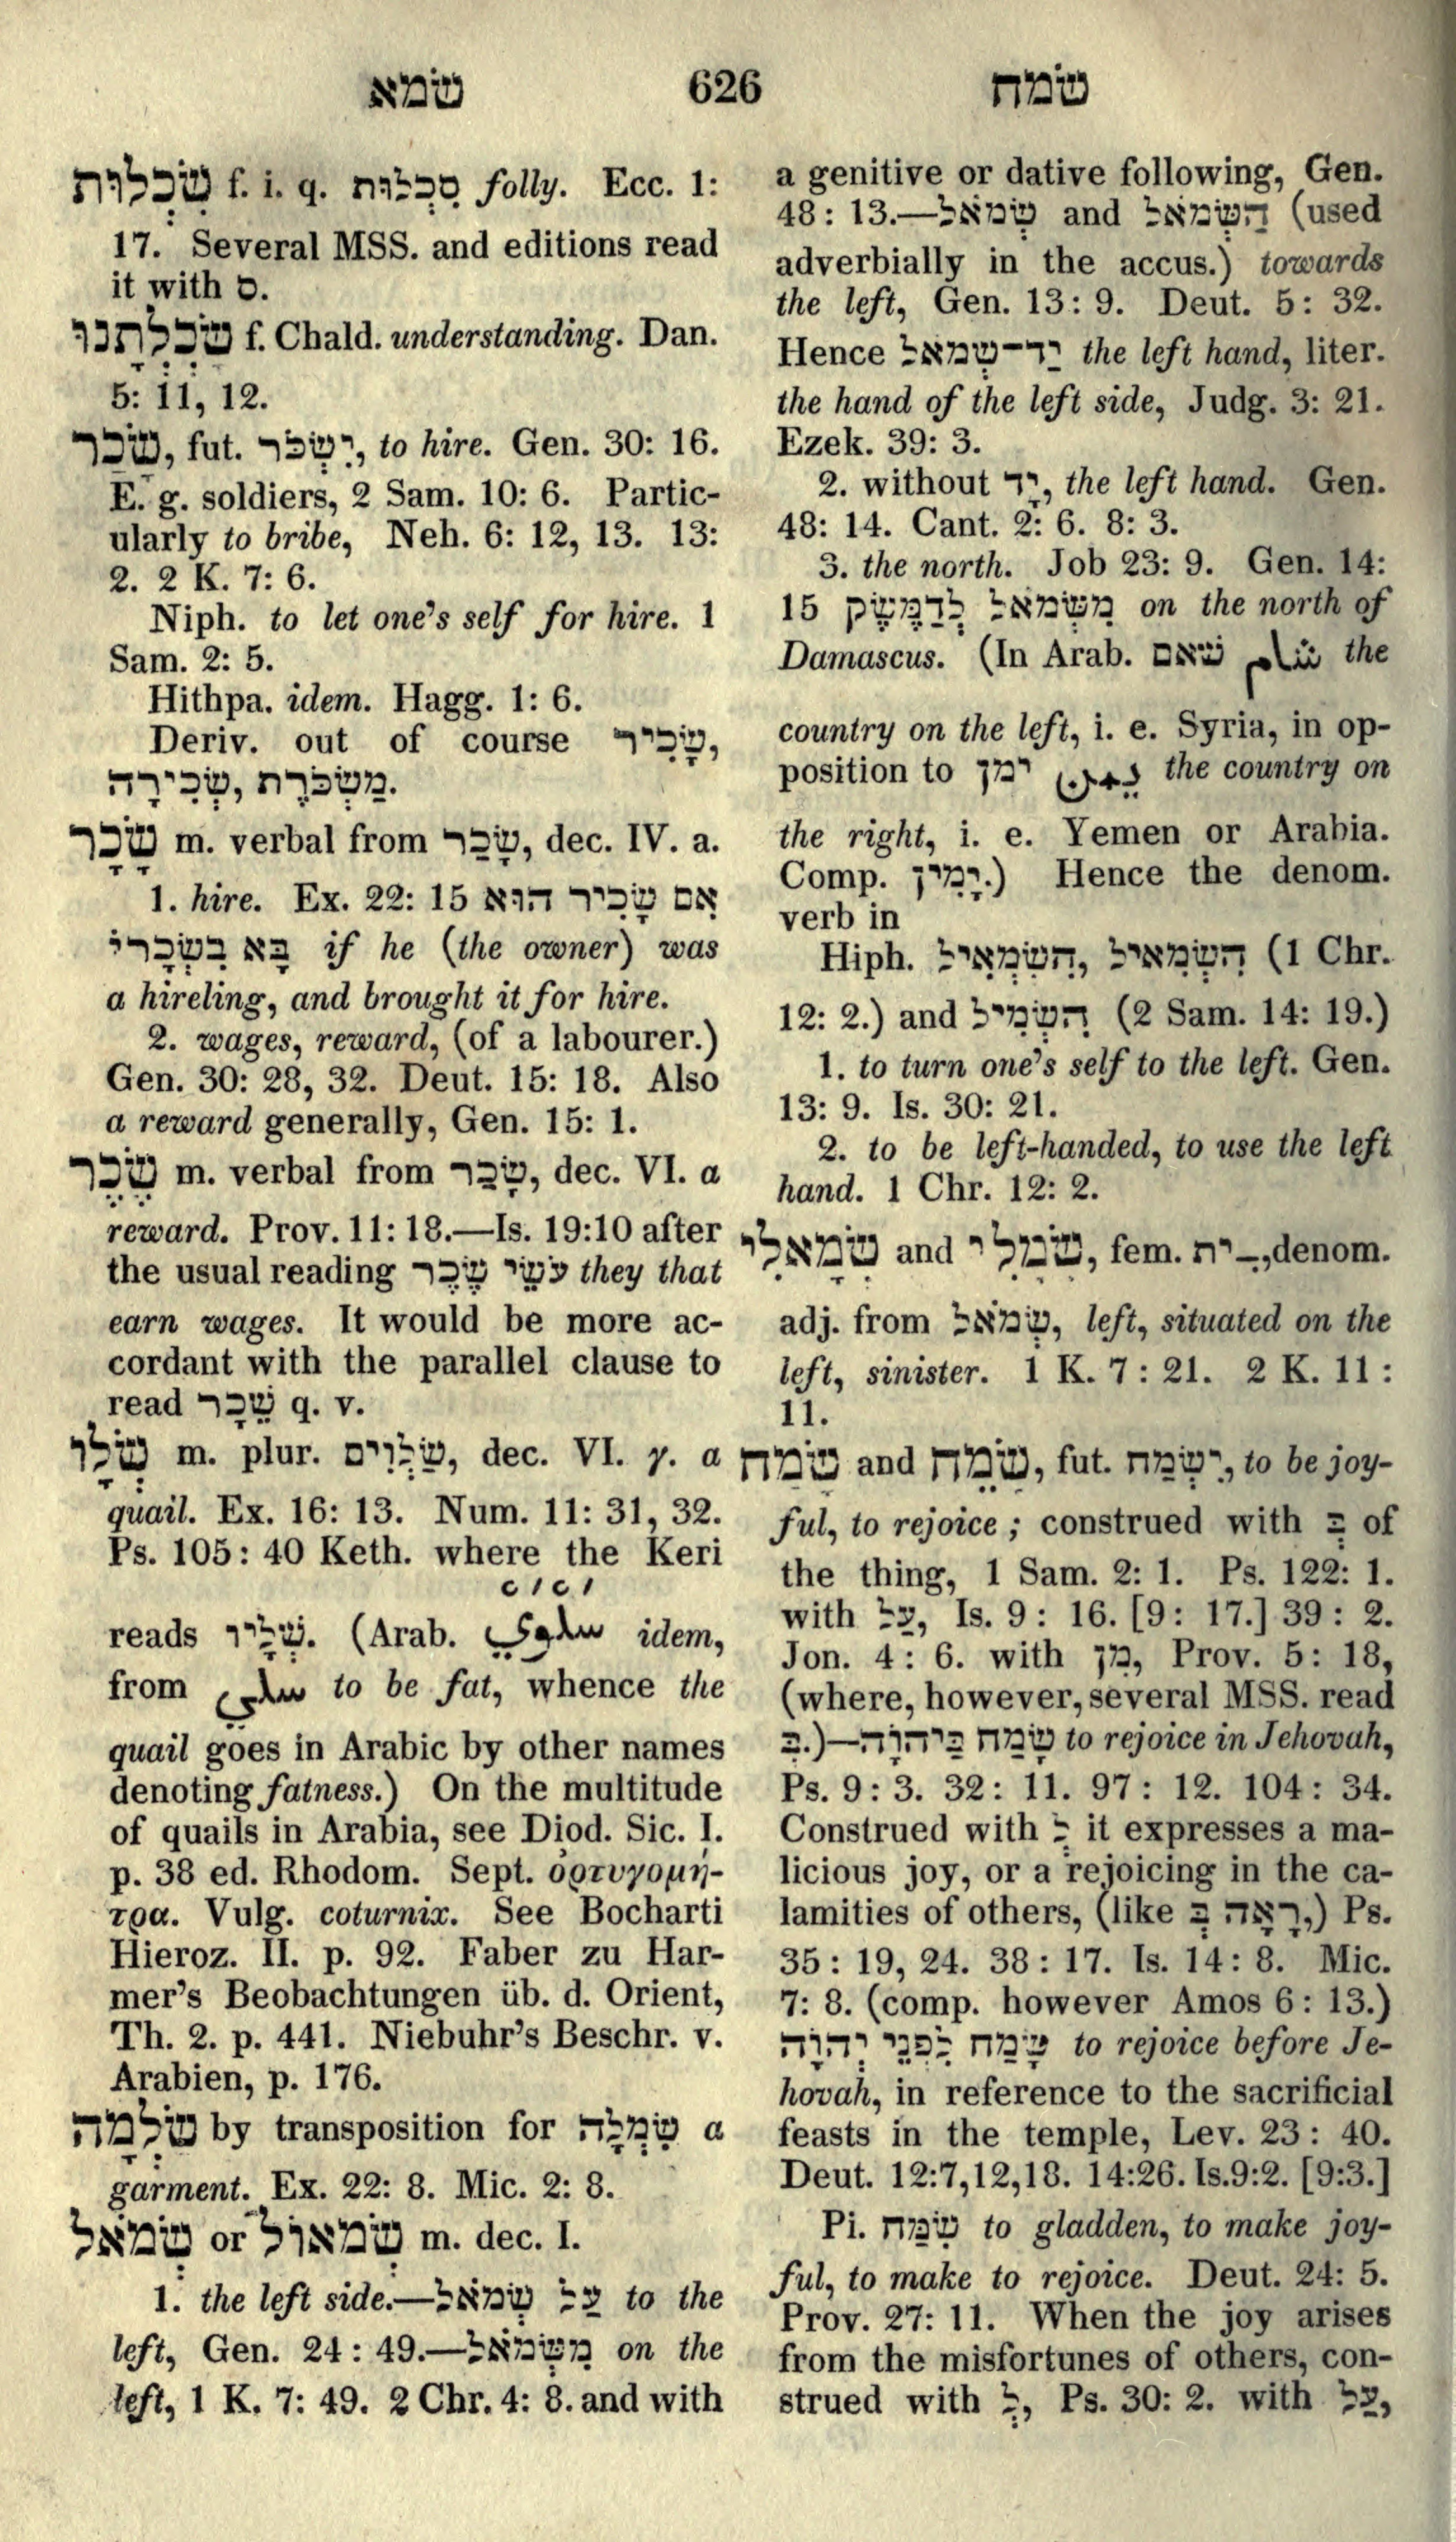 שׂמא 626 שׂמח
שִׂכְלוּת f. i. q. סִכְלוּת folly. Ecc. 1:
17. Several MSS. and editions read
it with ס.
שָׂכְלְתָנוּ f. Chald. understanding. Dan.
5: 11, 12.
שָׂכַר, fut. יִשְׂכֹּר, to hire. Gen. 30: 16.
E. g. soldiers, 2 Sam. 10: 6. Partic-
ularly to bribe, Neh. 6: 12, 13. 13:
2. 2 K. 7: 6.
Niph. to let one's self for hire. 1
Sam. 2: 5.
Hithpa. idem. Hagg. 1: 6.
Deriv. out of course שָׂכִיר,
מַשְׂכֹּרֶת, שְׂכִירָה.
שָׂכָר m. verbal from שָׂכַר, dec. IV. a.
1. hire. Ex. 22: 15 אִם שָׂכִיר הוּא
בָּא בִּשְׂכָרוֹ if he (the owner) was
a hireling, and brought it for hire.
2. wages, reward, (of a labourer.)
Gen. 30: 28, 32. Deut. 15: 18. Also
a reward generally, Gen. 15: 1.
שֶׂכֶר m. verbal from שָׂכַר, dec. VI. a
reward. Prov. 11: 18.—Is. 19:10 after
the usual reading עֹשֵׂי שֶׂכֶר they that
earn wages. It would be more ac-
cordant with the parallel clause to
read שֵׁכָר q. v.
שְׂלָו m. plur. שַׂלְוִים, dec. VI. γ. a
quail. Ex. 16: 13. Num. 11: 31, 32.
Ps. 105: 40 Keth. where the Keri
reads שְׂלָיו. (Arab. سلوي idem,
from سلي to be fat, whence the
quail goes in Arabic by other names
denoting fatness.) On the multitude
of quails in Arabia, see Diod. Sic. I.
p. 38 ed. Rhodom. Sept. ὀρτυγομή-
τρα. Vulg. coturnix. See Bocharti
Hieroz. II. p. 92. Faber zu Har-
mer's Beobachtungen üb. d. Orient,
Th. 2. p. 441. Niebuhr's Beschr. v.
Arabien, p. 176.
שַׂלְמָה by transposition for שִׂמְלָה a
garment. Ex. 22: 8. Mic. 2: 8.
שְׂמֹאל or שְׂמֹאול m. dec. I.
1. the left side.—עַל שְׂמֹאל to the
left, Gen. 24: 49.—מִשְּׂמֹאל on the
left, 1 K. 7: 49. 2 Chr. 4: 8. and with
a genitive or dative following, Gen.
48: 13.—שְׂמֹאל and הַשְּׂמֹאל (used
adverbially in the accus.) towards
the left, Gen. 13: 9. Deut. 5: 32.
Hence יַד־שְׂמֹאל the left hand, liter.
the hand of the left side, Judg. 3: 21.
Ezek. 39: 3.
2. without יָד, the left hand. Gen.
48: 14. Cant. 2: 6. 8: 3.
3. the north. Job 23: 9. Gen. 14:
15 מִשְּׂמֹאל לְדַמֶּשֶׂק on the north of
Damascus. (In Arab. שׁאם شام the
country on the left, i. e. Syria, in op-
position to ימן يمن the country on
the right, i. e. Yemen or Arabia.
Comp. יָמִין.) Hence the denom.
verb in
Hiph. הִשְׂמְאִיל, הִשְׂמִאיל (1 Chr.
12: 2.) and הִשְׂמִיל (2 Sam. 14: 19.)
1. to turn one's self to the left. Gen.
13: 9. Is. 30: 21.
2. to be left-handed, to use the left
hand. 1 Chr. 12: 2.
שְׂמָאלִי and שְׂמָלִי, fem. ־ִית, denom.
adj. from שְׂמֹאל, left, situated on the
left, sinister. 1 K. 7: 21. 2 K. 11:
11.
שָׂמַח and שָׂמֵחַ, fut. יִשְׂמַח, to be joy-
ful, to rejoice; construed with בְּ of
the thing, 1 Sam. 2: 1. Ps. 122: 1.
with עַל, Is. 9: 16. [9: 17.] 39: 2.
Jon. 4: 6. with מִן, Prov. 5: 18,
(where, however, several MSS. read
בְּ.)—שָׂמַח בַּיהוָֹה to rejoice in Jehovah,
Ps. 9: 3. 32: 11. 97: 12. 104: 34.
Construed with לְ it expresses a ma-
licious joy, or a rejoicing in the ca-
lamities of others, (like רָאָה בְּ,) Ps.
35: 19, 24. 38: 17. Is. 14: 8. Mic.
7: 8. (comp. however Amos 6: 13.)
שָׂמַח לִפְנֵי יְהוָֹה to rejoice before Je-
hovah, in reference to the sacrificial
feasts in the temple, Lev. 23: 40.
Deut. 12:7,12,18. 14:26. Is.9:2. [9:3.]
Pi. שִׂמַּח to gladden, to make joy-
ful, to make to rejoice. Deut. 24: 5.
Prov. 27: 11. When the joy arises
from the misfortunes of others, con-
strued with לְ, Ps. 30: 2. with עַל,